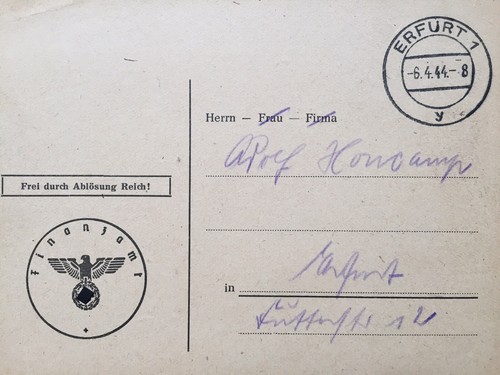 ERFURT 1
-6.4.44.- 8
y
Herrn – Frau – Firma
Adolf Honcamp
Frei durch Ablösung Reich!
Finanzamt
Erfurt
in
12